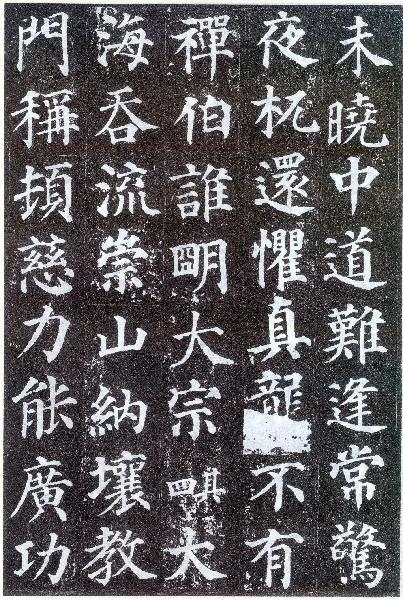 未曉中道難逢常驚
夜杌還懼真龍不有
禪伯誰明大宗其四大
海吞流崇山納壤教
門稱頓慈力能廣功